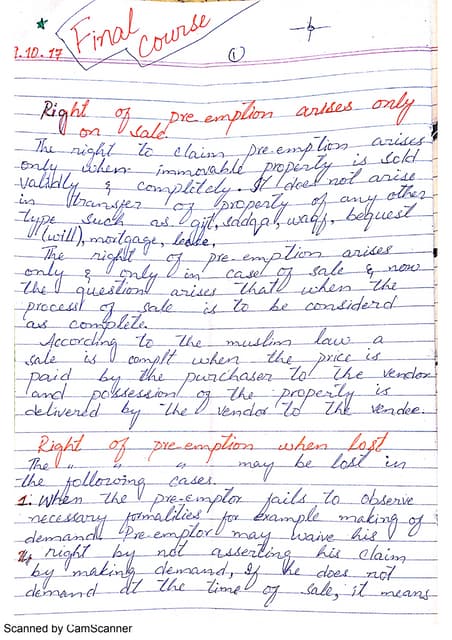 Final
course
?.10.17
1
Right of pre emption arises only
on sale
The right to claim pre-emption arises
only when immovable property is sold
validly & completely. It does not arise
in transfer of property of any other
type such as gift, sadqa, waqf, bequest
(will), mortgage, lease.
The right of pre emption arises
only & only in case of sale & now
the question arises that when the
process of sale is to be considerd
as complete.
According to the muslim law a
sale is complt when the price is
paid by the purchaser to the vendor
and possession of the property is
delivered by the vendor to the vendee.
Right of pre-emption when lost
The " " " may be lost in
the following cases.
1. When the pre-emptor fails to observe
necessary formalities for example making of
demand. Pre-emptor may waive his
right by not asserting his claim
by making demand, If he does not
demand at the time of sale, it means
Scanned by CamScanner